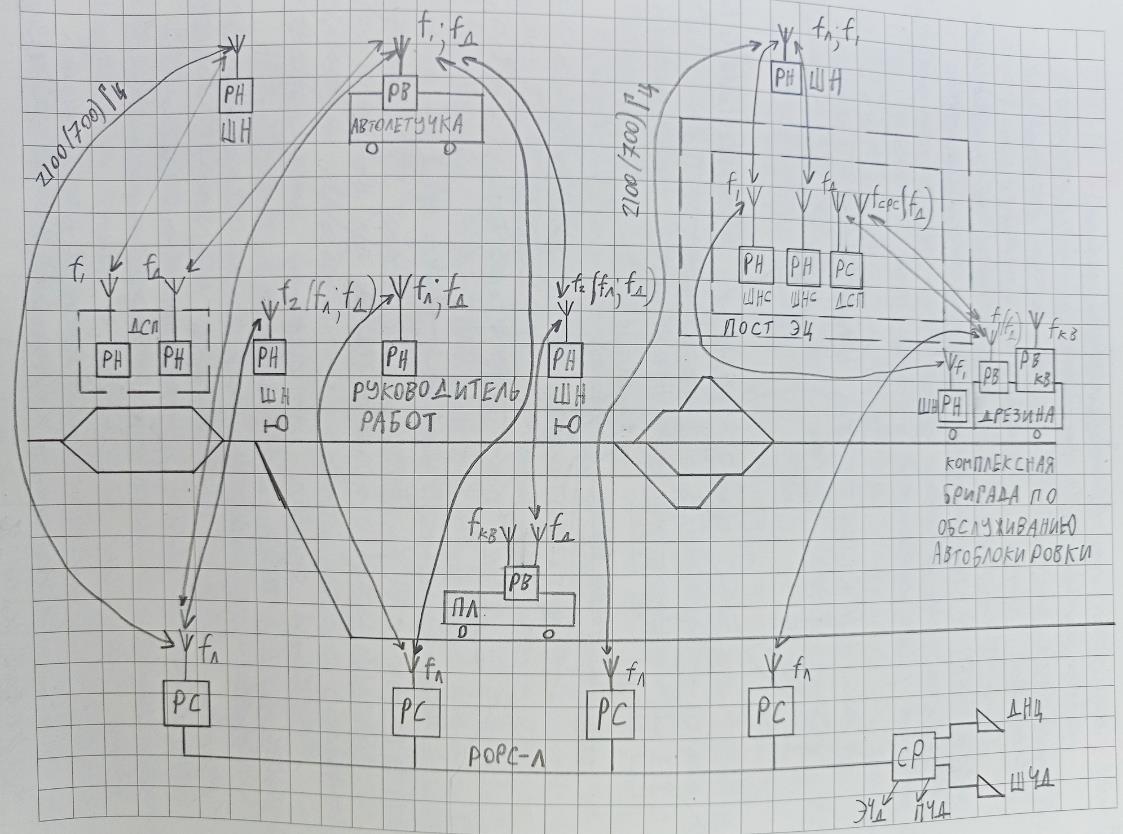 2100(700) Гц
РН
ШН
f₁; fд
РВ
АВТОЛЕТУЧКА
2100(700) Гц
fл; f₁
РН ШН
f₁
fд
fсрс(fд)
РН
РН
РС
ШНС
ШНС
ДСП
ПОСТ ЭЦ
f₁
fд
ДСП
РН
РН
f₂(fл; fд)
РН
ШН
Ю
fл; fд
РН
РУКОВОДИТЕЛЬ
РАБОТ
f₂(fл; fд)
РН
ШН
Ю
f(fд)
fкв
f₁
РВ
РВ
КВ
ШН
РН
ДРЕЗИНА
КОМПЛЕКСНАЯ
БРИГАДА ПО
ОБСЛУЖИВАНИЮ
АВТОБЛОКИРОВКИ
fкв
fд
РВ
ПЛ
fл
РС
fл
РС
fл
РС
fл
РС
РОРС-Л
СР
ДНЦ
ШЧД
ЭЧД
ПЧД